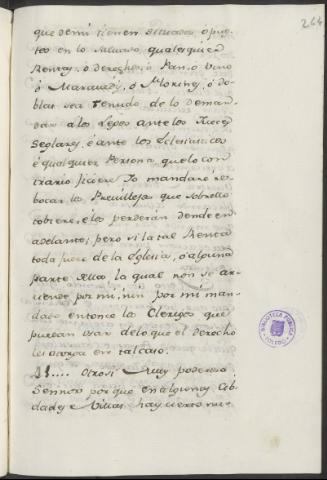 264
que demi tienen situados ó pues
tos en lo salvado, qualesquier
Rentas, ó derechos, ó Pan, ó Vino
ó Maravedis, ó Florines, ó do
blas sea tenudo de lo deman
dar á los Legos ante los Jueces
Seglares, é ante los Eclesiasticos
é qualquier Persona, que lo con
trario ficiere Yo mandare re
bocar los Previllejos que sobrello
tobiere, é los perderán dende en
adelante; pero si la tal Renta
toda fuere de la Iglesia, ó alguna
parte della la qual non se ar
riende por mi, nin por mi man
dado entonce los Clerigos que
puedan usar de lo que el derecho
les otorga en tal caso.
Otrosi Muy poderoso
Sennor por que en algunas Cib
dades é Villas hay cierto nu=
BIBLIOTECA PUBLICA
TOLEDO